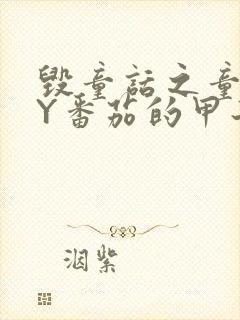 毁童话之童
Y番茄的甲
洇紫